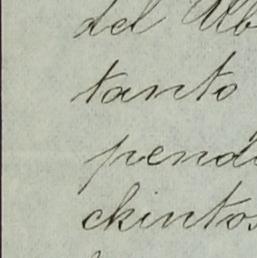 del Alb
tanto
pend
ckintos